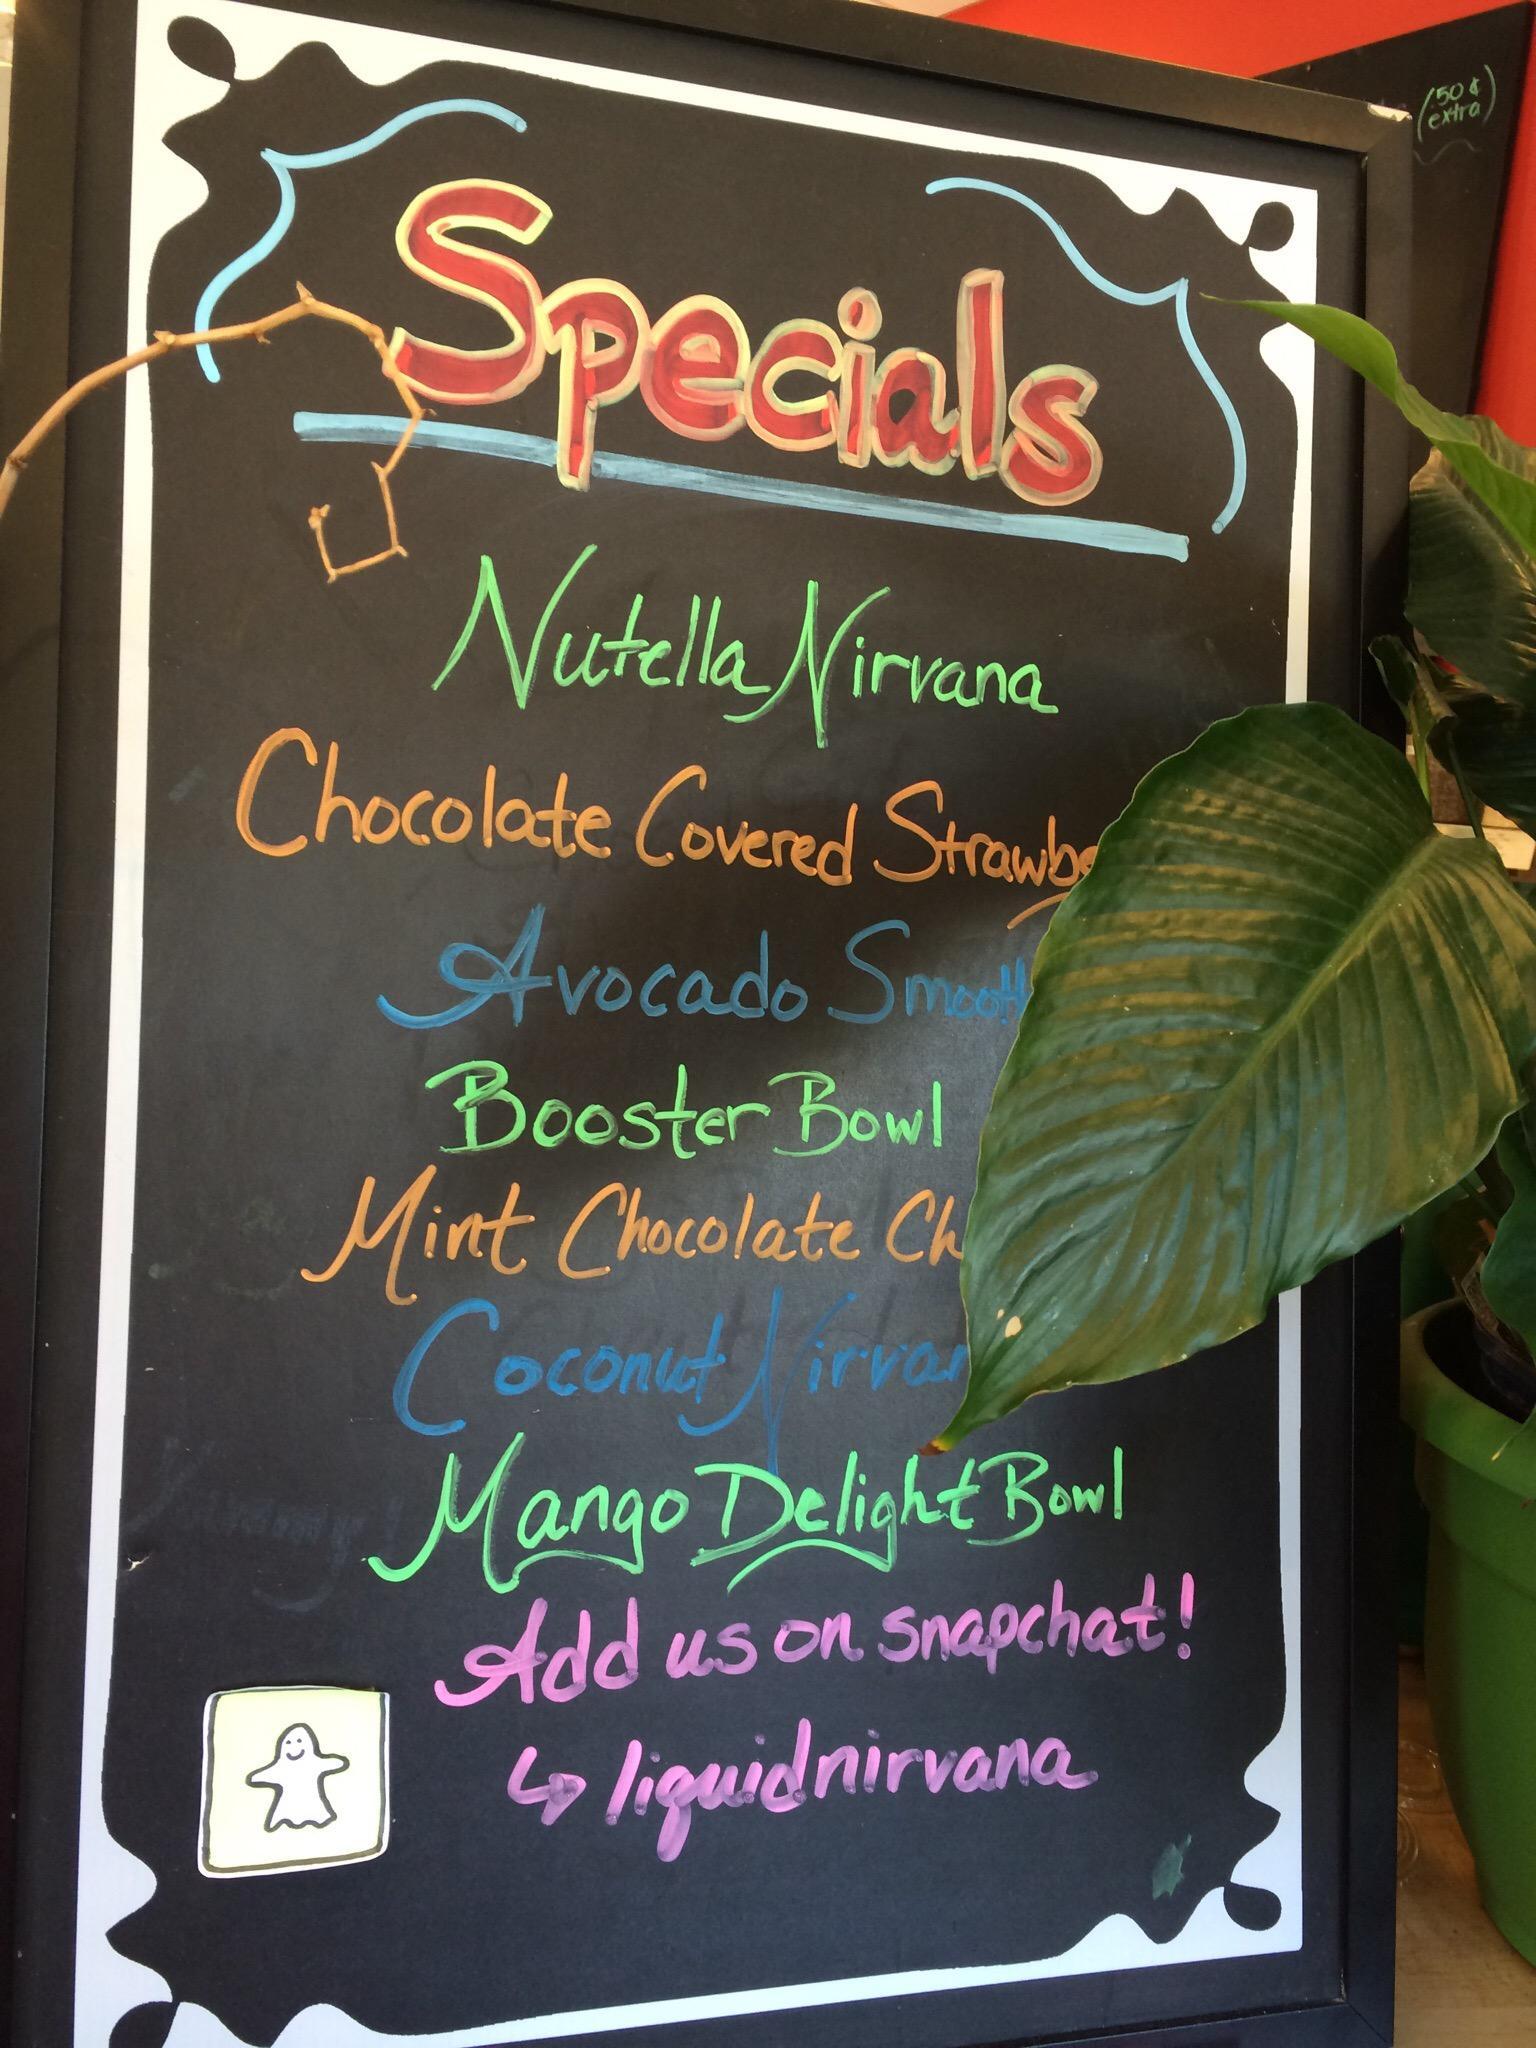 (.50¢
extra)
Specials
Nutella Nirvana
Chocolate Covered
Avocado
Booster Bowl
Mint Chocolate
Coconut
Mango Delight Bowl
Add us on snapchat!
↳ liquidnirvana